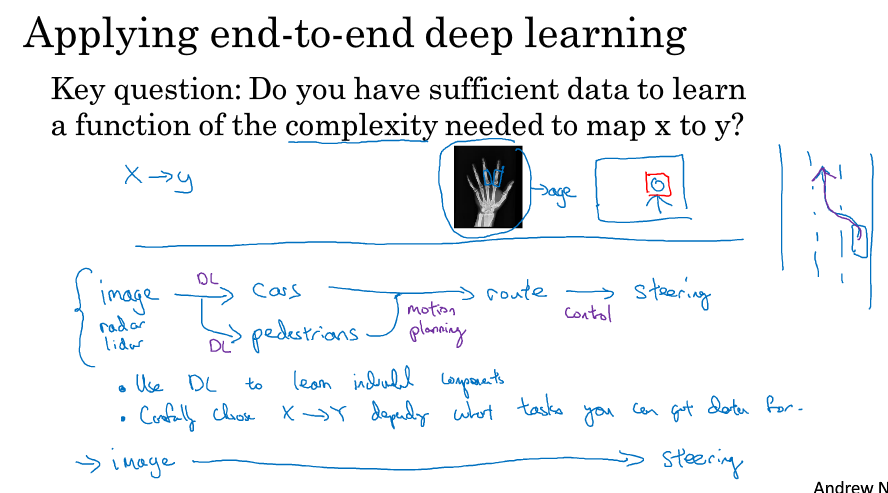 Applying end-to-end deep learning
Key question: Do you have sufficient data to learn
a function of the complexity needed to map x to y?
X → y
→ age
image
radar
lidar
DL
cars
DL
pedestrians
motion
planning
route
control
steering
• Use DL to learn individual components
• Carefully choose X → Y depending what tasks you can get data for.
→ image → steering
Andrew N